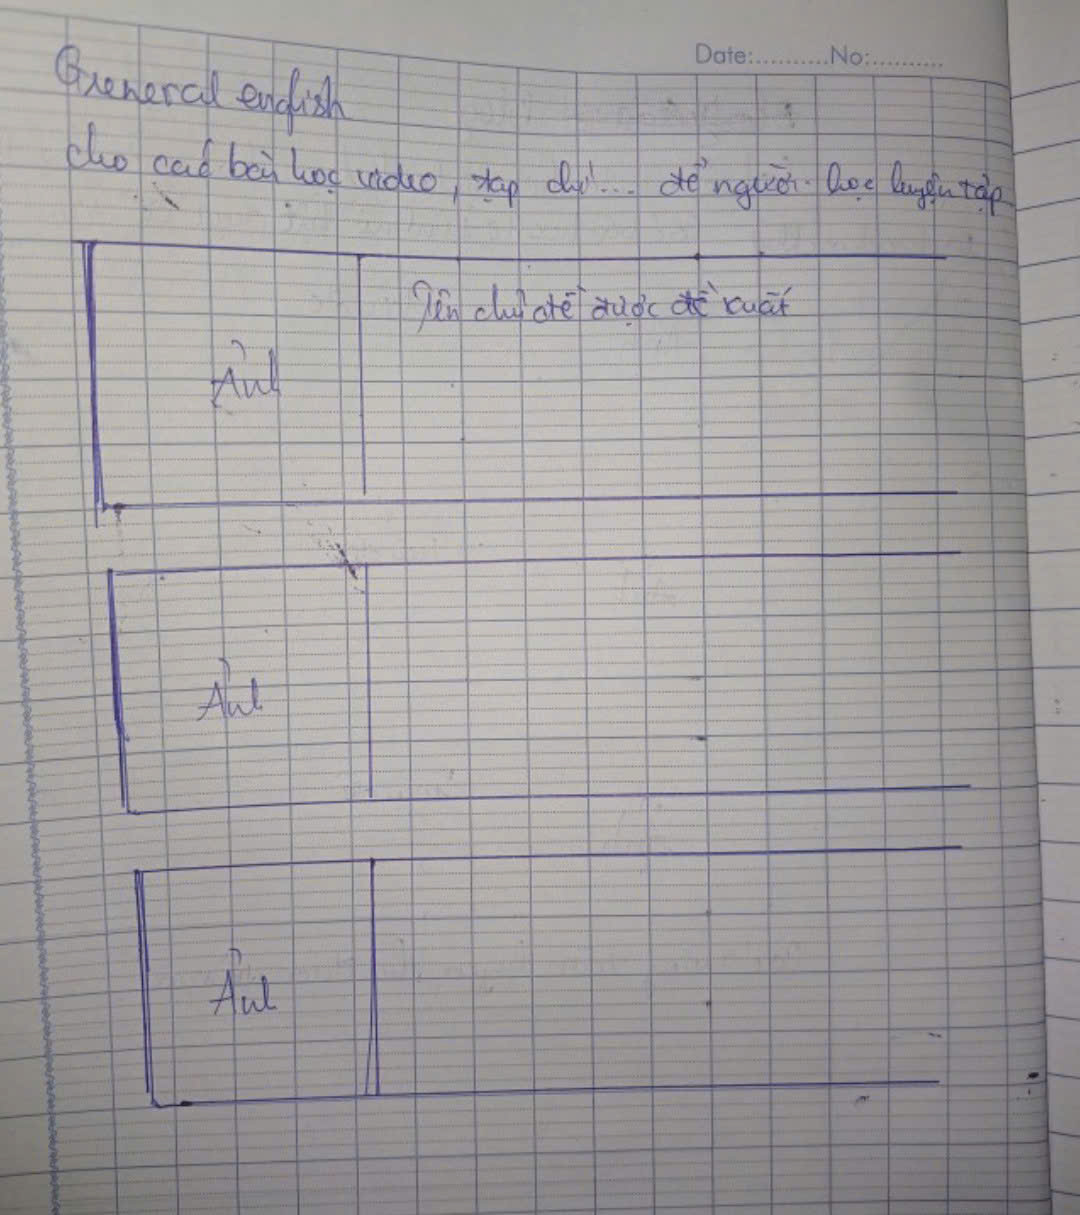 Date:...........No:...........
General english
cho các bài học video, tạp chí... để người học luyện tập
Tên chủ đề được đề xuất
Ảnh
Ảnh
Ảnh